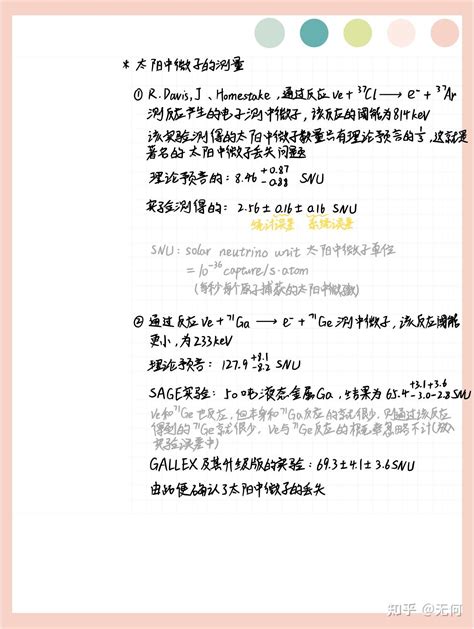 * 太阳中微子的测量
① R.Davis, J. Homestake, 通过反应 νe + ³⁷Cl ⟶ e⁻ + ³⁷Ar
测反应产生的电子测中微子, 该反应的阈能为814keV
该实验测得的太阳中微子数量只有理论预言的⅓, 这就是
著名的太阳中微子丢失问题
理论预言的: 8.46 +0.87 -0.88 SNU
实验测得的: 2.56 ± 0.16 ± 0.16 SNU
统计误差 系统误差
SNU: solar neutrino unit 太阳中微子单位
= 10⁻³⁶ capture/s·atom
(每秒每个原子捕获的太阳中微子数)
② 通过反应 νe + ⁷¹Ga ⟶ e⁻ + ⁷¹Ge 测中微子, 该反应阈能
更小, 为233keV
理论预言: 127.9 +8.1 -8.2 SNU
SAGE实验: 50吨液态金属Ga, 结果为 65.4 +3.1+3.6 -3.0-2.8 SNU
νe和⁷¹Ge也反应, 但本身和⁷¹Ga反应的就很少, 则通过该反应
得到的⁷¹Ge就很少, νe与⁷¹Ge反应的概率忽略不计(放入
实验误差中)
GALLEX及其升级版的实验: 69.3 ± 4.1 ± 3.6 SNU
由此便确认了太阳中微子的丢失
知乎 @无何